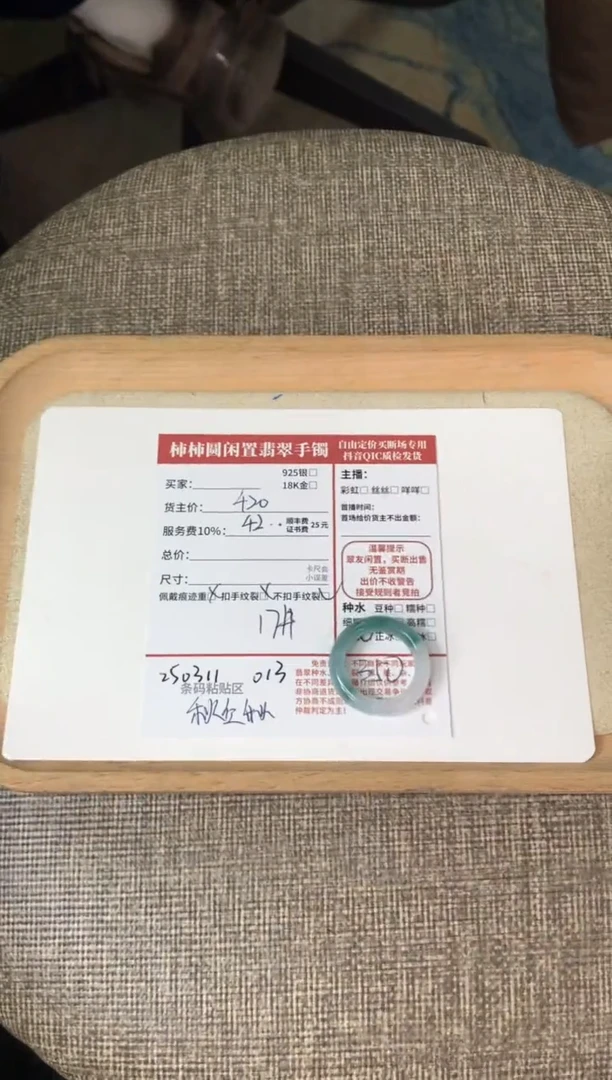 柿柿圆闲置翡翠手镯
自由定价买断场专用
抖音QIC质检发货
925银□
18K金□
买家：
货主价： 420
服务费10%： 42
顺丰费
证书费 25元
总价：
尺寸：
卡尺由
小误差
佩戴痕迹重□扣手纹裂□不扣手纹裂□
17#
主播：
彩虹□ 丝丝□ 咩咩□
首播时间：
首场给价货主不出金额：
温馨提示
翠友闲置，买断出售
无鉴赏期
出价不收警告
接受规则者竞拍
种水 豆种□ 糯种□
高糯
正冰
250311 013
条码粘贴区
免责
翡翠种水
在不同差异